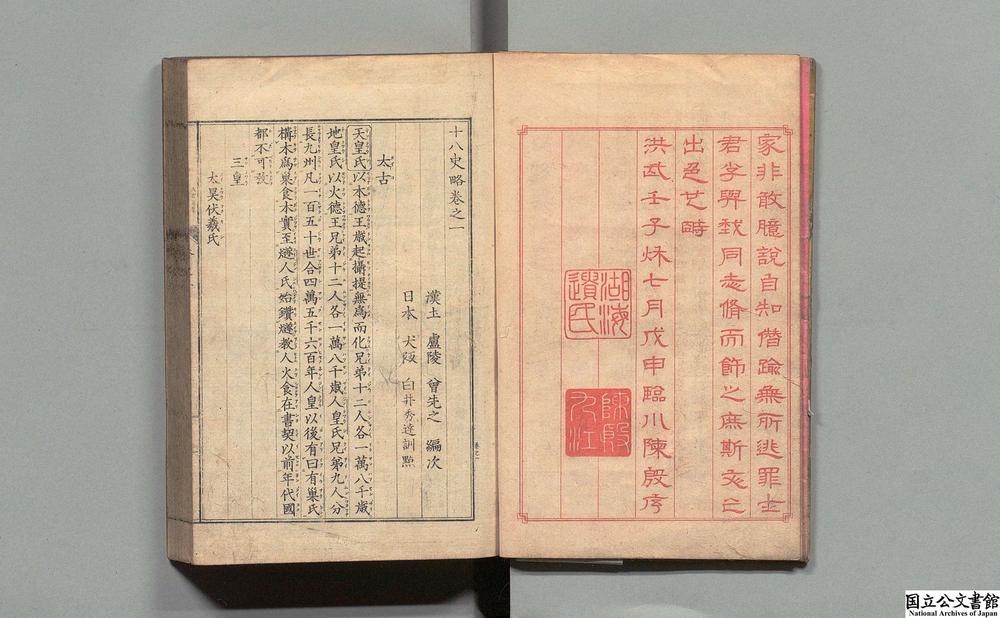 家非敢臆說自知僭踰無所逃罪士
君子與我同志脩而飾之庶斯文之
出色也時
洪武壬子秋七月戊申臨川陳殷序
湖海
遺氏
陳殷
九江
十八史略卷之一
漢土 盧陵 曾先之 編次
日本 大阪 白井秀達訓點
太古
天皇氏以木德王歲起攝提無爲而化兄弟十二人各一萬八千歲
地皇氏以火德王兄弟十二人各一萬八千歲人皇氏兄弟九人分
長九州凡一百五十世合四萬五千六百年人皇以後有曰有巢氏
構木爲巢食木實至燧人氏始鑽燧教人火食在書契以前年代國
都不可攷
三皇
太昊伏羲氏
国立公文書館
National Archives of Japan